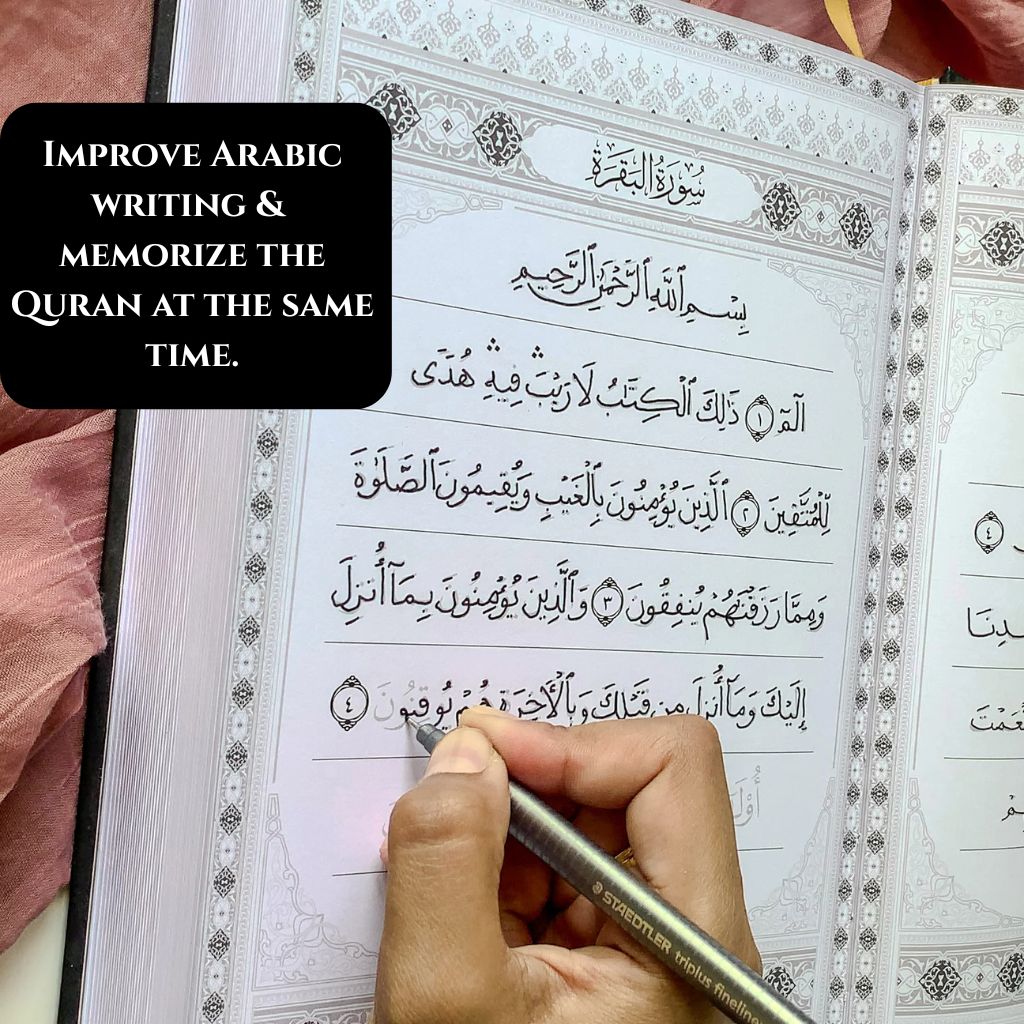 IMPROVE ARABIC
WRITING &
MEMORIZE THE
QURAN AT THE SAME
TIME.
سُورَةُ البَقَرَةِ
بِسْمِ ٱللَّهِ ٱلرَّحْمَٰنِ ٱلرَّحِيمِ
الٓمٓ ١ ذَٰلِكَ ٱلْكِتَٰبُ لَا رَيْبَ ۛ فِيهِ ۛ هُدًى
لِّلْمُتَّقِينَ ٢ ٱلَّذِينَ يُؤْمِنُونَ بِٱلْغَيْبِ وَيُقِيمُونَ ٱلصَّلَوٰةَ
وَمِمَّا رَزَقْنَٰهُمْ يُنفِقُونَ ٣ وَٱلَّذِينَ يُؤْمِنُونَ بِمَآ أُنزِلَ
إِلَيْكَ وَمَآ أُنزِلَ مِن قَبْلِكَ وَبِٱلْأَخِرَةِ هُمْ يُوقِنُونَ ٤
٤
STAEDTLER triplus fineliner